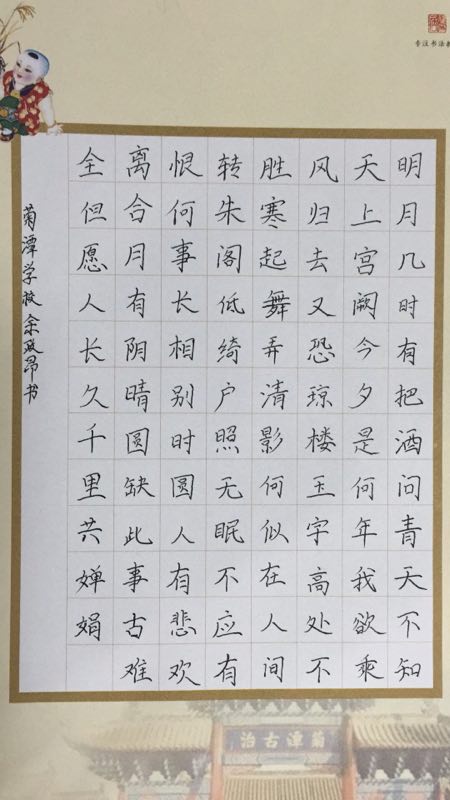 专注书法
明月几时有把酒问青天不知
天上宫阙今夕是何年我欲乘
风归去又恐琼楼玉宇高处不
胜寒起舞弄清影何似在人间
转朱阁低绮户照无眠不应有
恨何事长相别时圆人有悲欢
离合月有阴晴圆缺此事古难
全但愿人长久千里共婵娟
菊潭学校余政昂书
菊潭古治